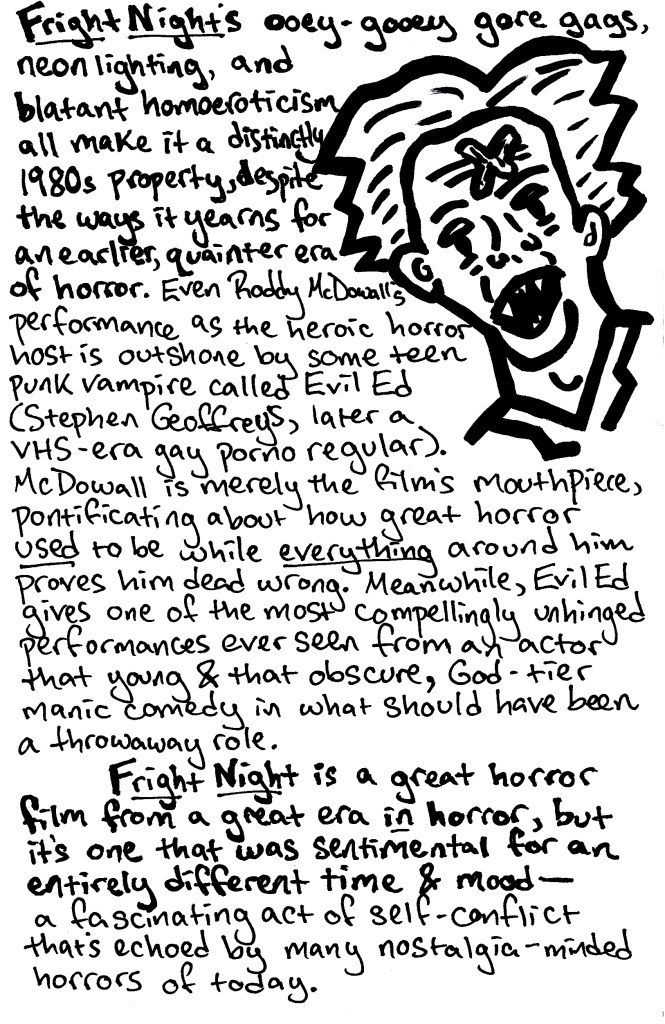 Fright Night's ooey-gooey gore gags,
neon lighting, and
blatant homoeroticism
all make it a distinctly
1980s property, despite
the ways it yearns for
an earlier, quainter era
of horror. Even Roddy McDowall's
performance as the heroic horror
host is outshone by some teen
punk vampire called Evil Ed
(Stephen Geoffreys, later a
VHS-era gay porno regular).
McDowall is merely the film's mouthpiece,
pontificating about how great horror
used to be while everything around him
proves him dead wrong. Meanwhile, Evil Ed
gives one of the most compellingly unhinged
performances ever seen from an actor
that young & that obscure, God-tier
manic comedy in what should have been
a throwaway role.
Fright Night is a great horror
film from a great era in horror, but
it's one that was sentimental for an
entirely different time & mood—
a fascinating act of self-conflict
that's echoed by many nostalgia-minded
horrors of today.